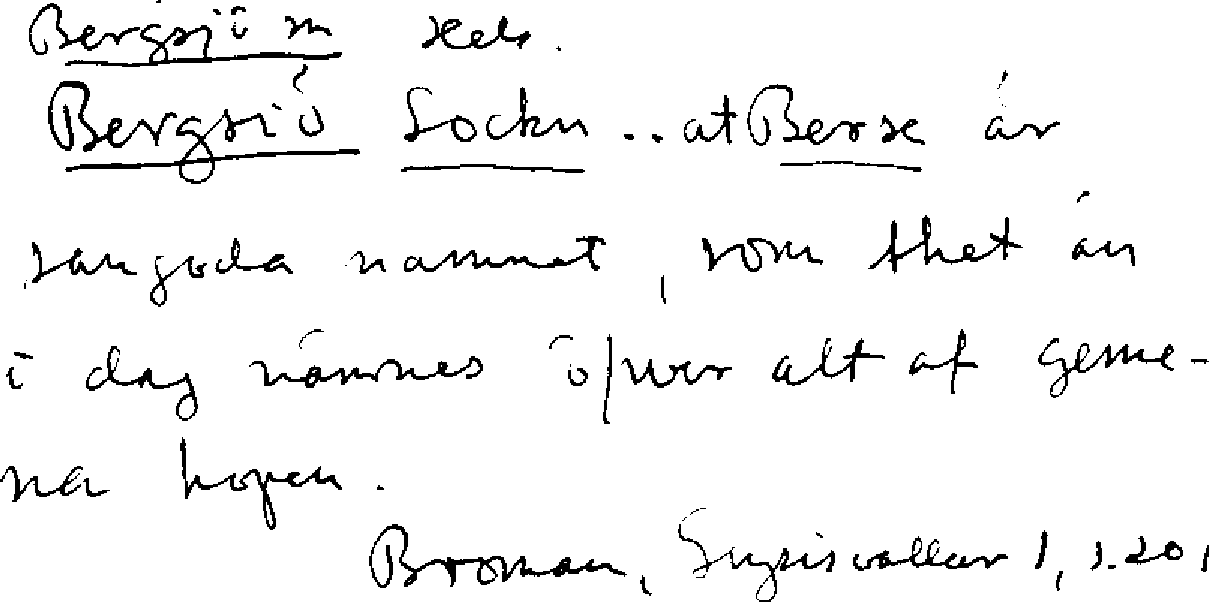 Bergsjö sn Hels.
Bergsiö Sockn .. at Berse är
sangoda namnet, som thet än
i dag nämnes öfwer alt af geme-
na hopen.
Broman, Glysisvallur 1, s. 20,